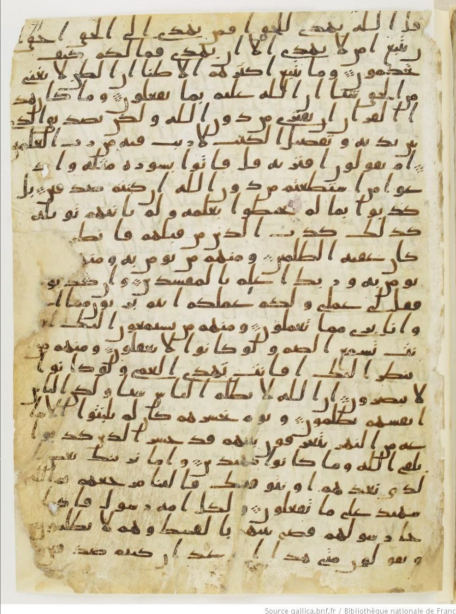 قل الله يهدي للحق افمن يهدي الى الحق احق
ن يتبع امن لا يهدي الا ان يهدى فما لكم كيف
تحكمون وما يتبع اكثرهم الا ظنا ان الظن لا يغني
من الحق شيا ان الله عليم بما يفعلون وما كان هذ
ا القران ان يفترى من دون الله ولكن تصديق الذي
بين يديه وتفصيل الكتب لا ريب فيه من رب العلمين
ام يقولون افتريه قل فاتوا بسورة مثله واد
عوا من استطعتم من دون الله ان كنتم صدقين بل
كذبوا بما لم يحيطوا بعلمه ولما ياتهم تاويله
كذلك كذب الذين من قبلهم فانظر
كان عقبة الظلمين ومنهم من يومن به ومنهم
يومن به وربك اعلم بالمفسدين وان كذبو
فقل لي عملي ولكم عملكم انتم بريون مما ا
وانا بري مما تعملون ومنهم من يستمعون اليك ا
نت تسمع الصم ولو كانوا لا يعقلون ومنهم من
ينظر اليك افانت تهدي العمي ولو كانوا
لا يبصرون ان الله لا يظلم الناس شيا ولكن الناس
انفسهم يظلمون ويوم نحشرهم كان لم يلبثوا الا سا
عة من النهر يتعرفون بينهم قد خسر الذين كذبوا
بلقا الله وما كانوا مهتدين واما نرينك بعض ا
لذي نعدهم او نتوفينك فالينا مرجعهم ثم الله
شهيد على ما يفعلون ولكل امة رسول فاذا
جا رسولهم قضي بينهم بالقسط وهم لا يظلمون
ويقولون متى هذا الوعد ان كنتم صدقين
Source gallica.bnf.fr / Bibliothèque nationale de Franc